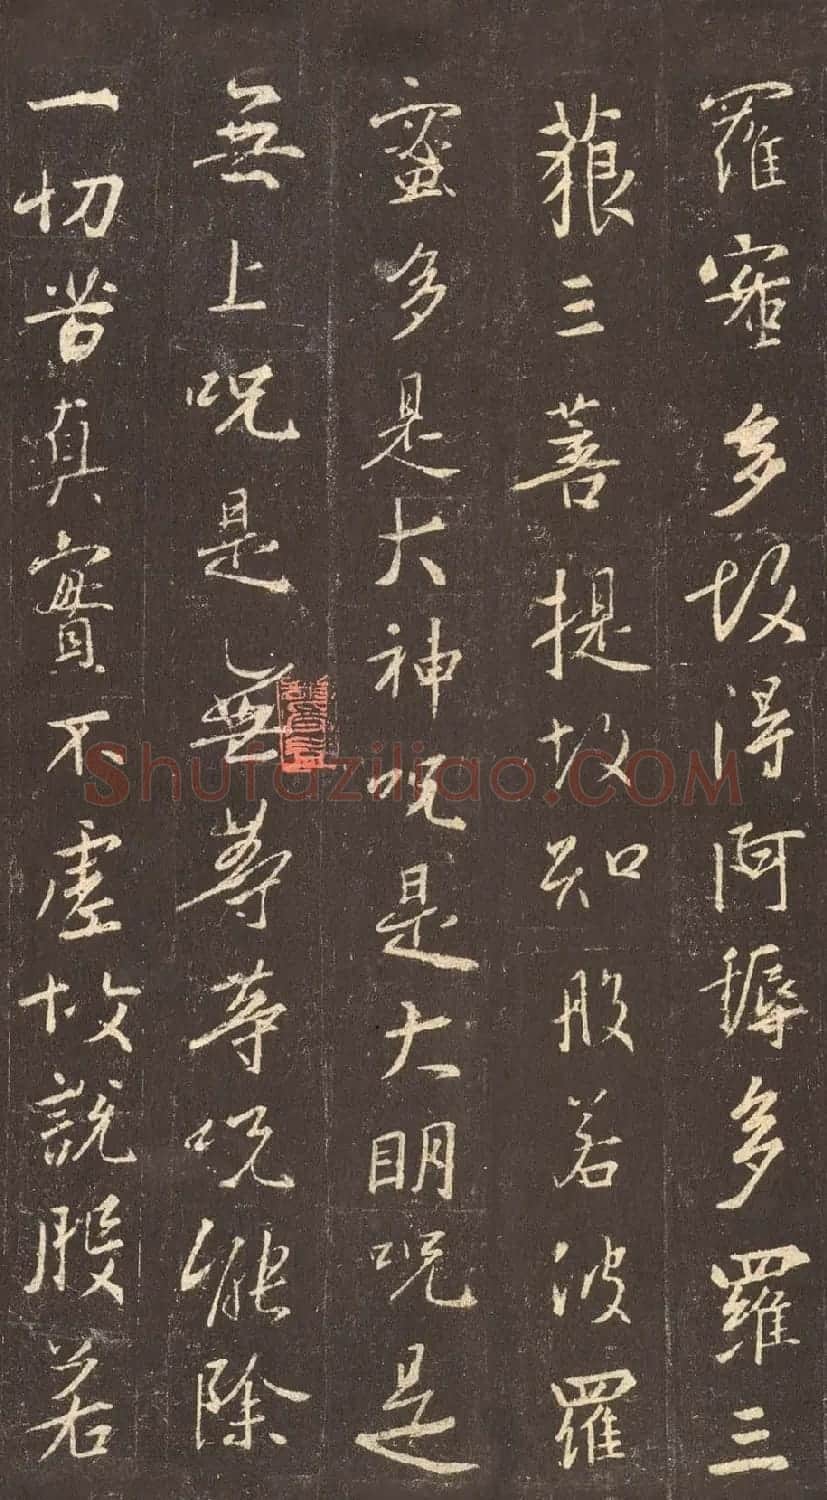 羅蜜多故得阿耨多羅三
藐三菩提故知般若波羅
蜜多是大神呪是大明呪是
無上呪是無等等呪能除
一切苦真實不虛故說般若
Shufaziliao.COM